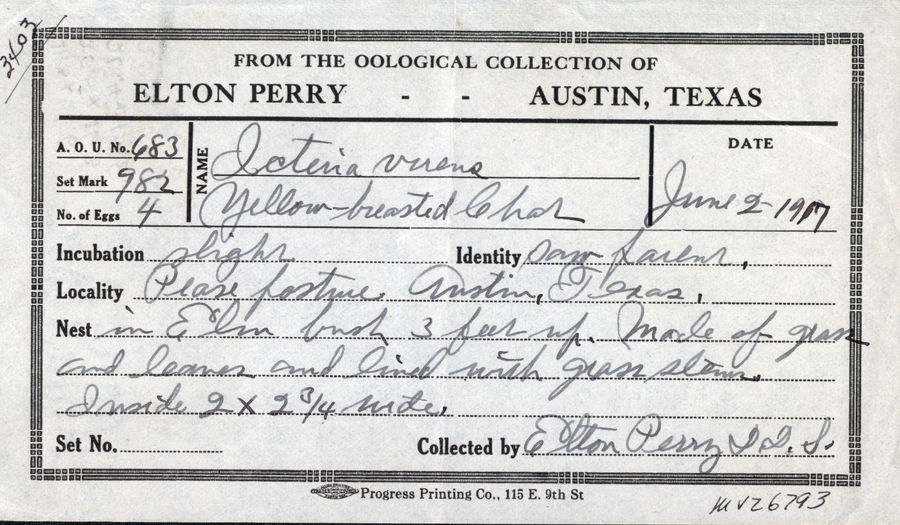 3403
FROM THE OOLOGICAL COLLECTION OF
ELTON PERRY - - AUSTIN, TEXAS
A. O. U. No. 683
NAME
Icteria virens
DATE
Set Mark 982
No. of Eggs 4
Yellow-breasted Chat
June 2 1917
Incubation slight Identity saw parent,
Locality Pease pasture. Austin, Texas.
Nest in Elm bush 3 feet up. Made of grass
and leaves and lined with grass stems.
Inside 2 x 2 3/4 wide.
Set No. Collected by Elton Perry D.D.S.
Progress Printing Co., 115 E. 9th St
MVZ6793